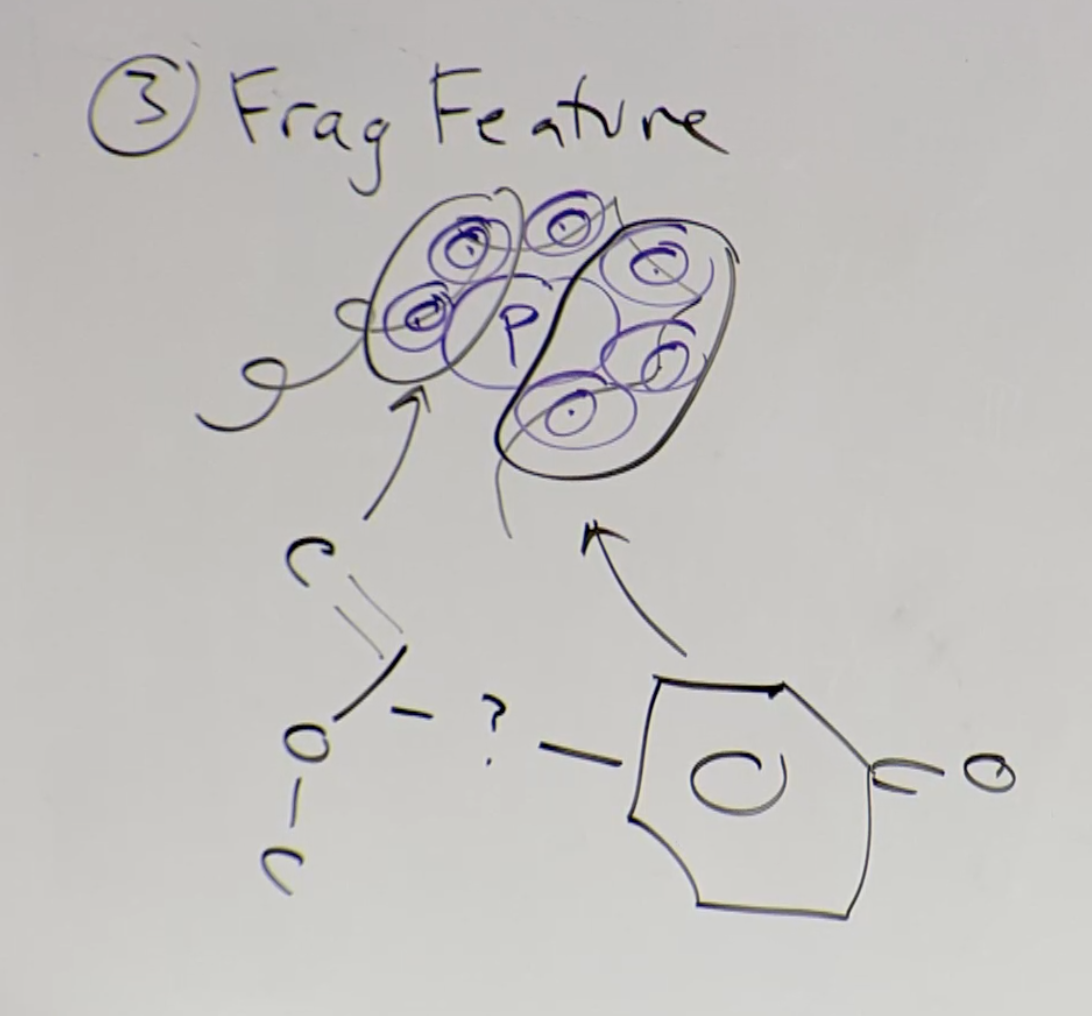 ③ Frag Feature
P
C
O - ? - C = O
C